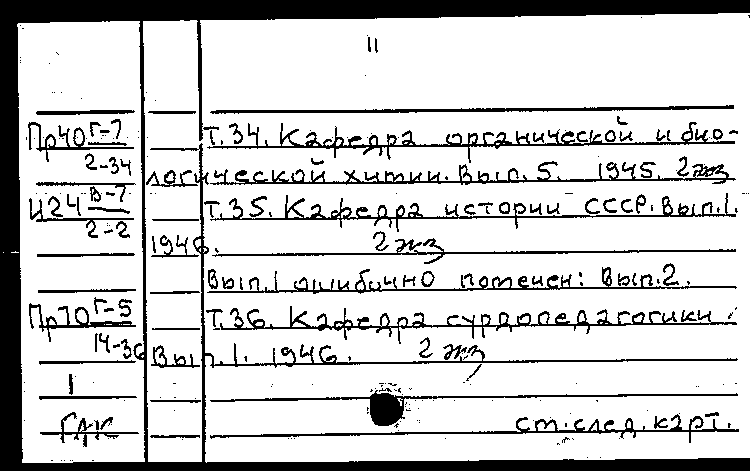 II
Пр40 Г-7 Т.34. Кафедра органической и био-
2-34 логической химии. Вып. 5. 1945. 2 экз
И24 В-7 Т.35. Кафедра истории СССР. Вып. 1.
2-2 1946. 2 экз
Вып. 1 ошибочно помечен: Вып. 2.
Пр70 Г-5 Т.36. Кафедра сурдопедагогики
14-36 Вып. 1. 1946. 2 экз
1
ГАК ст. след. карт.